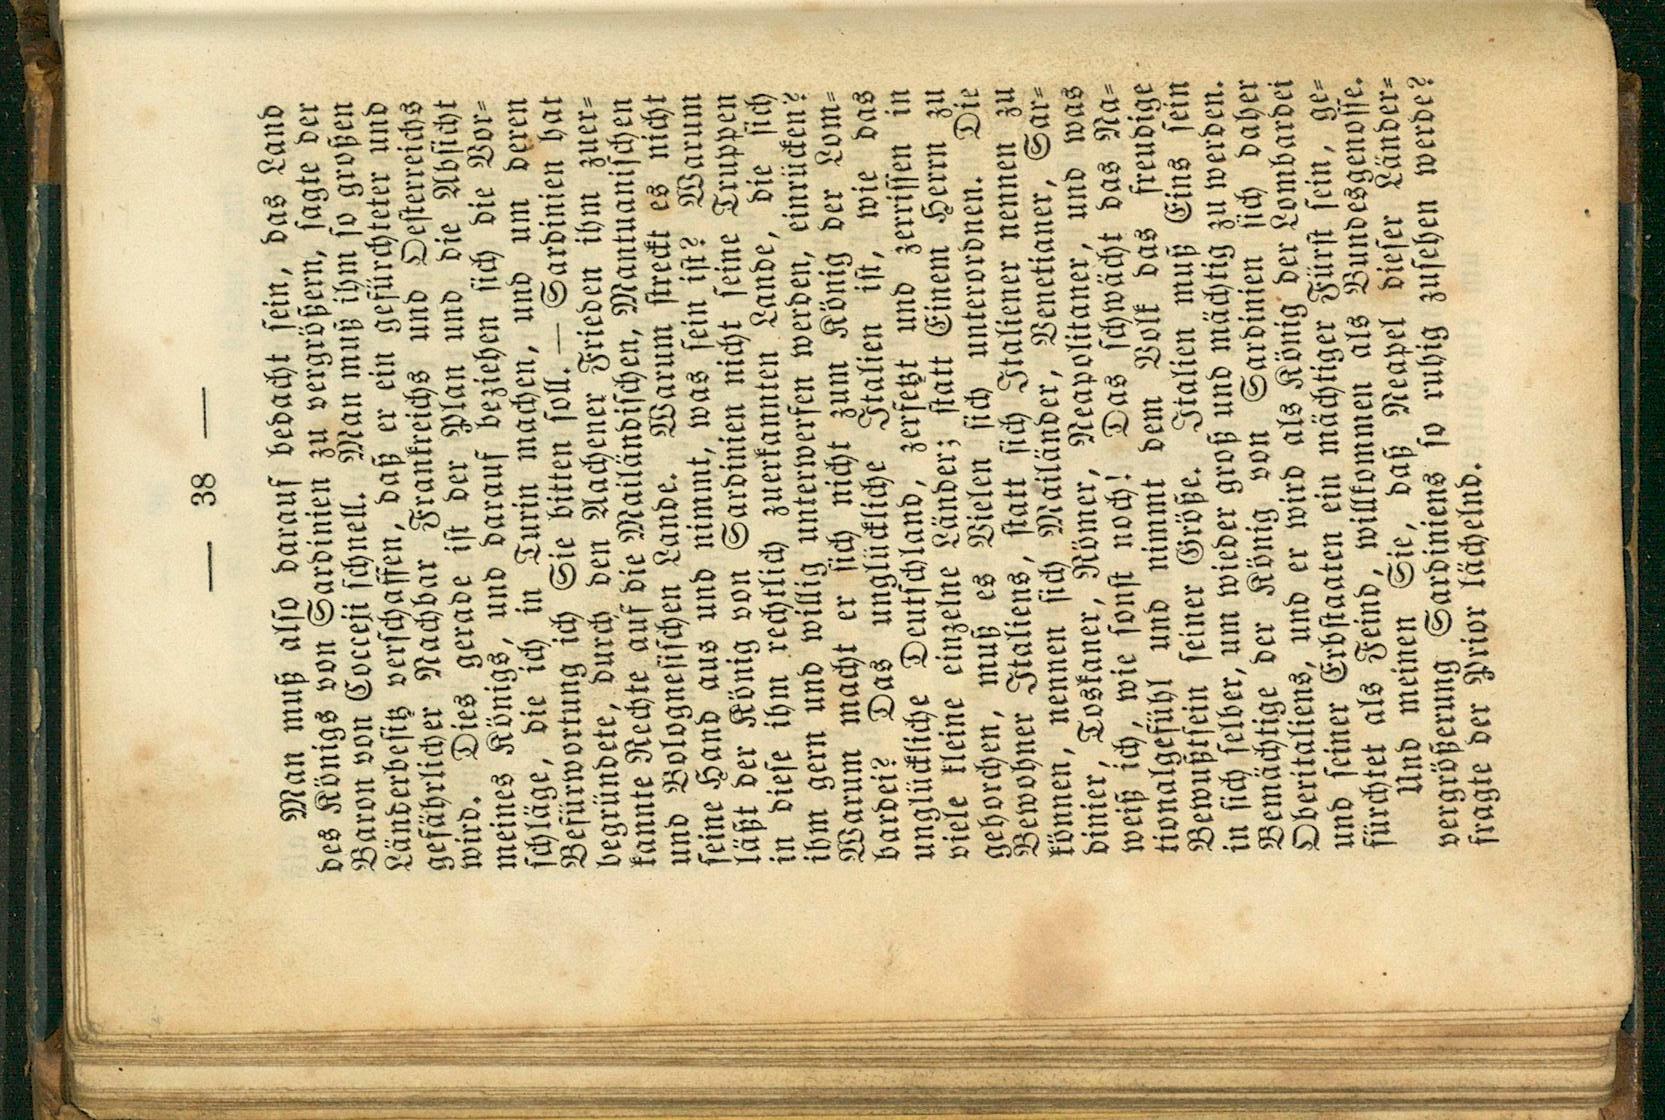 — 38 —
Man muß also darauf bedacht sein, das Land
des Königs von Sardinien zu vergrößern, sagte der
Baron von Cocceji schnell. Man muß ihm so großen
Länderbesitz verschaffen, daß er ein gefürchteter und
gefährlicher Nachbar Frankreichs und Oesterreichs
wird. Dies gerade ist der Plan und die Absicht
meines Königs, und darauf beziehen sich die Vor=
schläge, die ich in Turin machen, und um deren
Befürwortung ich Sie bitten soll. — Sardinien hat
begründete, durch den Aachener Frieden ihm zuer=
kannte Rechte auf die Mailändischen, Mantuanischen
und Bolognesischen Lande. Warum streckt es nicht
seine Hand aus und nimmt, was sein ist? Warum
läßt der König von Sardinien nicht seine Truppen
in diese ihm rechtlich zuerkannten Lande, die sich
ihm gern und willig unterwerfen werden, einrücken?
Warum macht er sich nicht zum König der Lom=
bardei? Das unglückliche Italien ist, wie das
unglückliche Deutschland, zersetzt und zerrissen in
viele kleine einzelne Länder; statt Einem Herrn zu
gehorchen, muß es Vielen sich unterordnen. Die
Bewohner Italiens, statt sich Italiener nennen zu
können, nennen sich Mailänder, Venetianer, Sar=
dinier, Toskaner, Römer, Neapolitaner, und was
weiß ich, wie sonst noch! Das schwächt das Na=
tionalgefühl und nimmt dem Volk das freudige
Bewußtsein seiner Größe. Italien muß Eins sein
in sich selber, um wieder groß und mächtig zu werden.
Bemächtige der König von Sardinien sich daher
Oberitaliens, und er wird als König der Lombardei
und seiner Erbstaaten ein mächtiger Fürst sein, ge=
fürchtet als Feind, willkommen als Bundesgenosse.
Und meinen Sie, daß Neapel dieser Länder=
vergrößerung Sardiniens so ruhig zusehen werde?
fragte der Prior lächelnd.